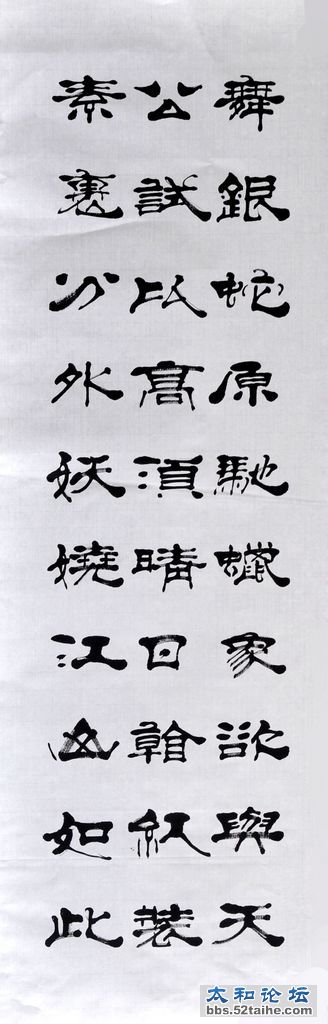 舞銀蛇原馳蠟象欲與天
公試比高須晴日看紅裝
素裹分外妖嬈江山如此
太和论坛
bbs.52taihe.com